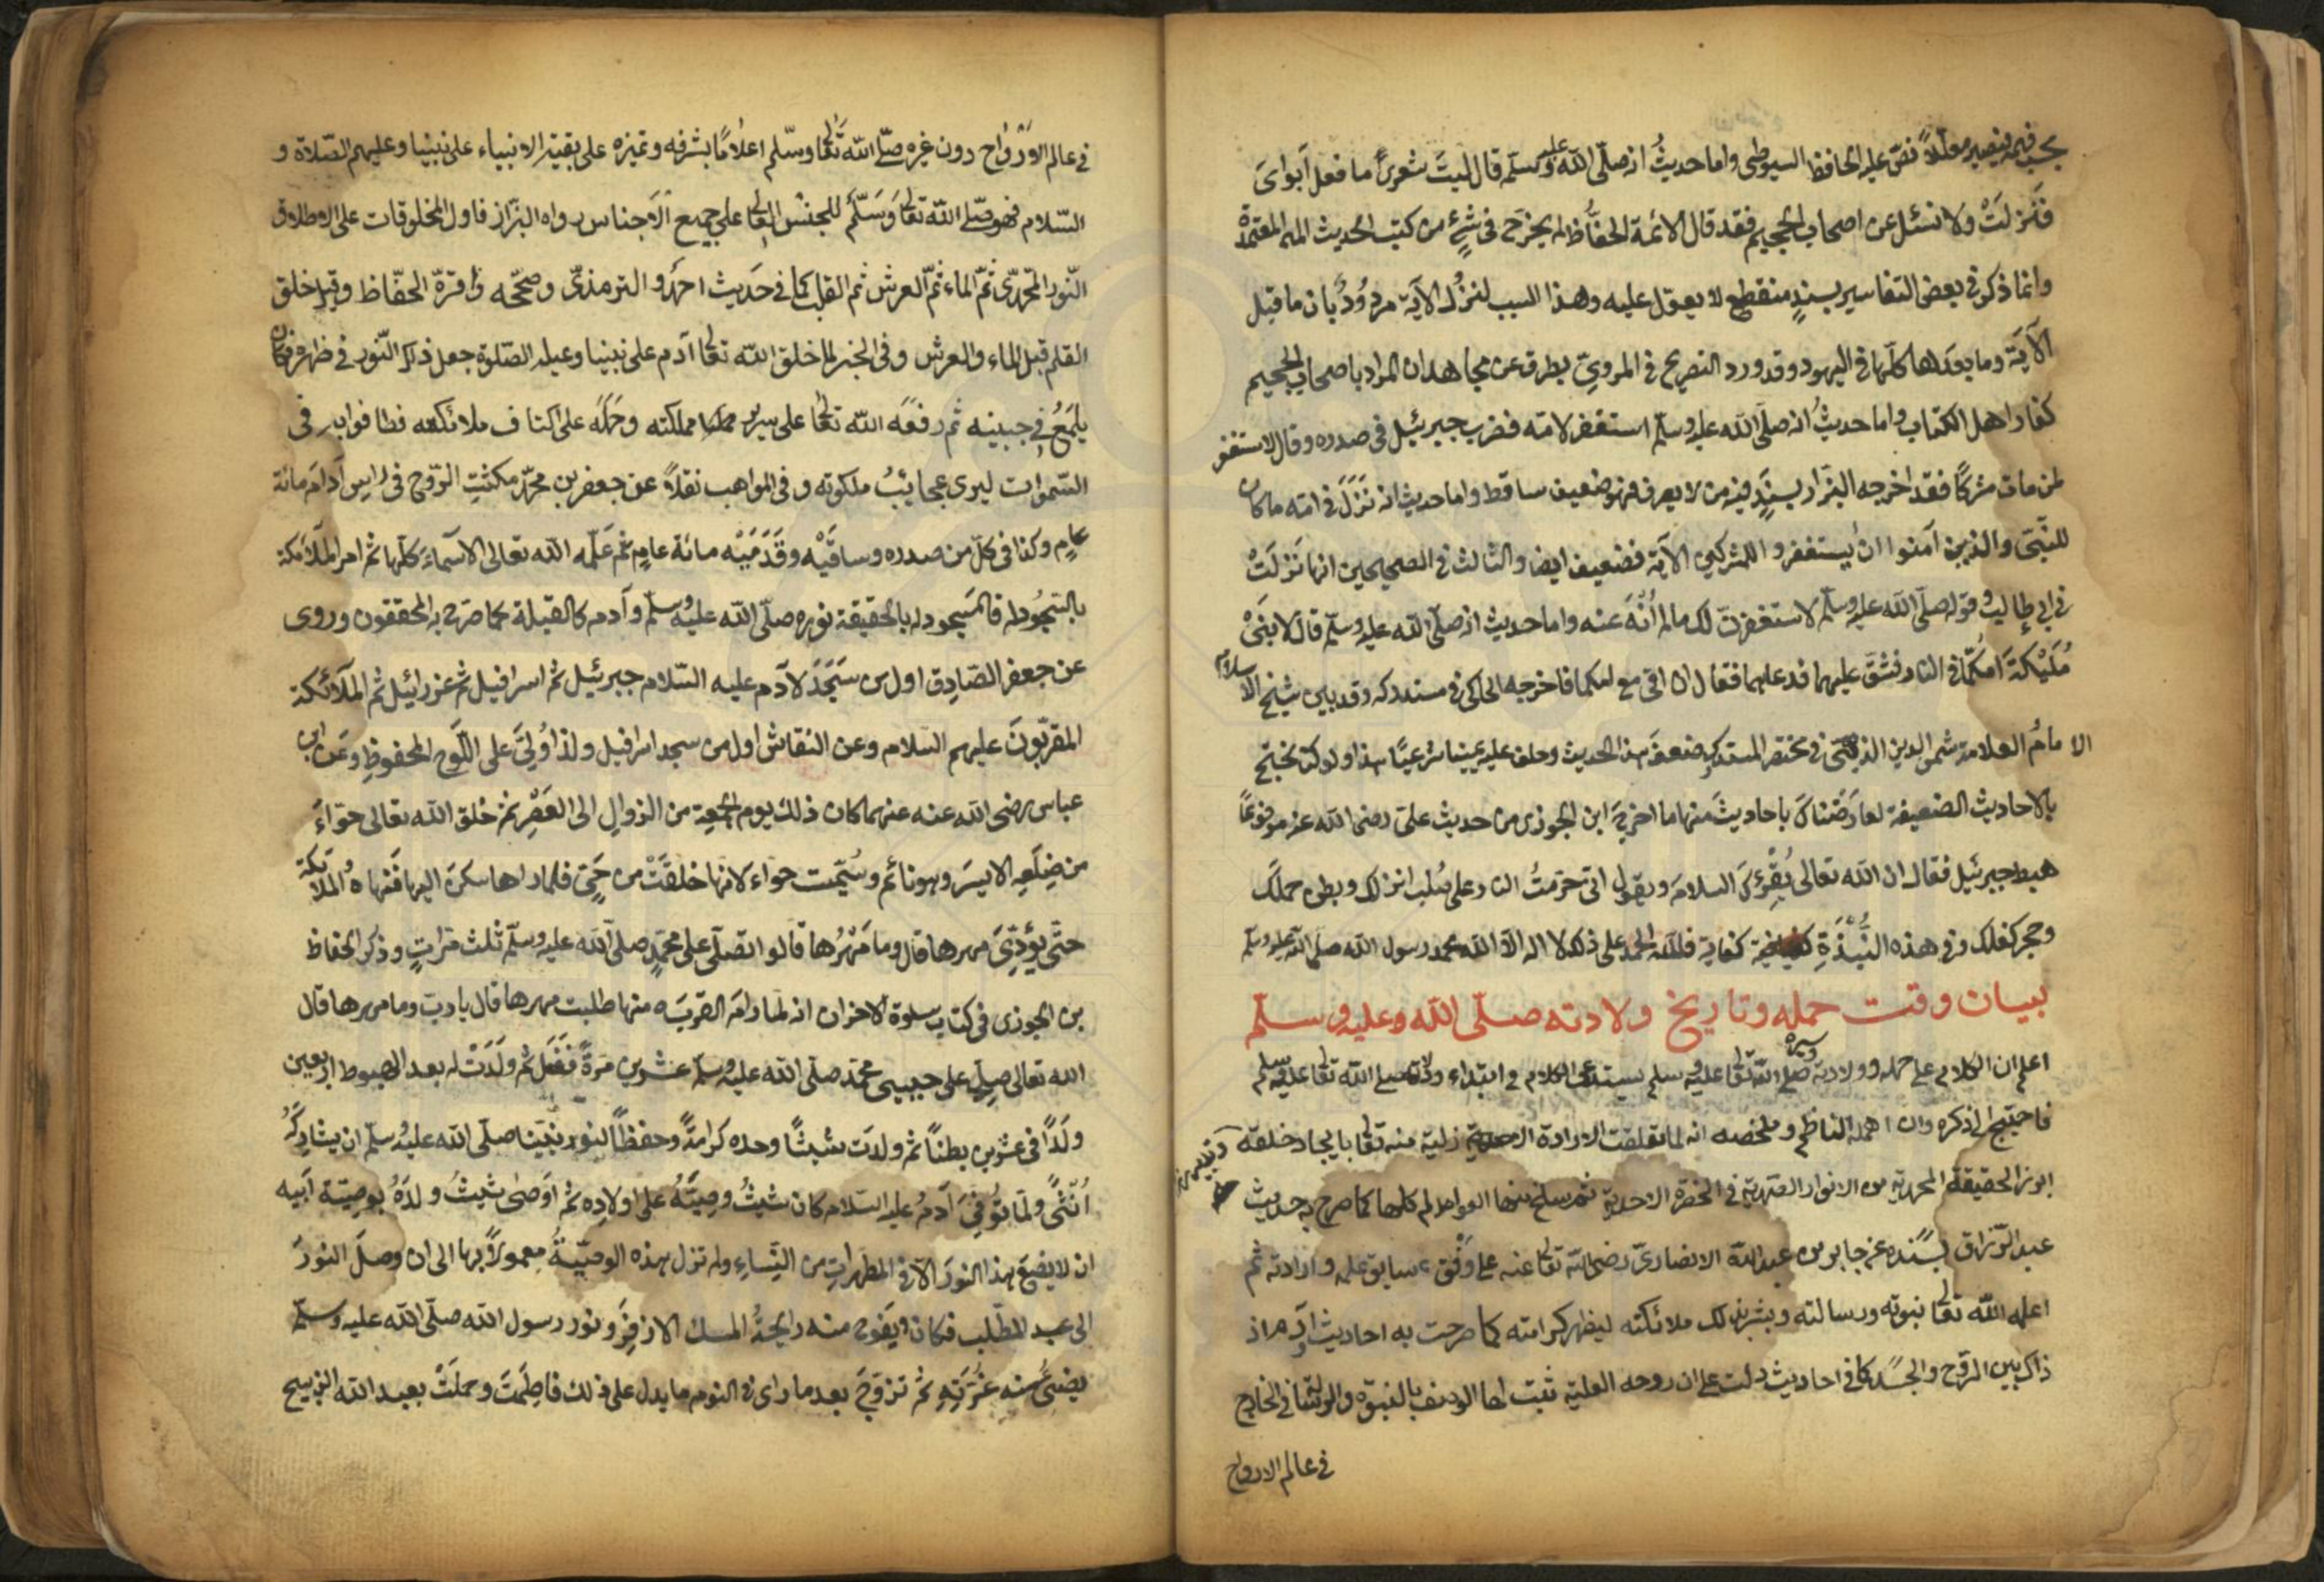 يجب فيه فيصير معللاً نصّ عليه الحافظ السيوطى واما حديثُ انه صلّى الله عليه وسلّم قال ليتَ شعرى ما فعل اَبواىَ
فَنَزلَتْ ولا تسئل عن اصحاب الجحيم فقد قال الائمة الحفّاظ لم يخرَج فى شئٍ من كتب الحديث المعتمدة
وانما ذكر فى بعض التفاسير بسندٍ منقطع لا يعوّل عليه وهذا السبب لنزُل الآية مردُودٌ بان ما قبل
الآيَة وما بعدَها كلّها فى اليهود وقد ورد التصريح فى المروىّ بطرق عن مجاهد ان المراد باصحاب الجحيم
كفار اهل الكتاب واما حديثُ انه صلّى الله عليه وسلّم استغفر لامّه فضرب جبرئيل فى صدره وقال لا تستغفر
لمن مات مشركًا فقد اخرجه البزّار بسندٍ فيه من لا يعرف فهو ضعيف ساقط واما حديث انه نَزَلَ فى امّه ما كان
للنبىّ والذين آمنوا ان يستغفروا للمشركين الآية فضعيف ايضا والثالث فى الصحيحين انها نَزلَتْ
فى ابى طالب وقوله صلّى الله عليه وسلّم لاستغفرنّ لك ما لم اُنْهَ عنه واما حديث انه صلّى الله عليه وسلّم قال لابنَىْ
مُلَيْكَةَ امّكما فى النار فشقّ عليهما فدعاهما فقال ان امّى مع امّكما فاخرجه الحاكم فى مستدركه وقد بين شيخ الاسلام
الامامُ العلامة شمس الدين الذهبى فى مختصر المستدرك ضعفَ هذا الحديث وحلف عليه يمينا شرعيًّا هذا ولو كنا نحتج
بالاحاديث الضعيفة لعارَضْناكَ باحاديثَ منها ما اخرجَه ابن الجوزى من حديث علىّ رضى الله عنه مرفوعًا
هبط جبرئيل فقال ان الله تعالى يُقْرِئُكَ السلامَ ويقول انى حرّمتُ النار على صُلب انزلك وبطن حملكَ
وحجر كفلك وفى هذه النُّبْذَةِ كفاية فللّه الحمد على ذلك لا اله الّا الله محمد رسول الله صلى الله عليه وسلّم
بيان وقت حمله وتاريخ ولادته صلّى الله وعليه وسلّم
اعلم ان الكلام على حمله وولادته وسيره صلّى الله تعالى عليه وسلم يستدعى الكلام فى ابتداء ولادته صلى الله تعالى عليه وسلم
فاحتيج الى ذكره وان اهمله الناظم وملخصه انه لما تعلقت الارادة الازليّة منه تعالى بايجاد خلقه
ابرز الحقيقة المحمدية من الانوار الصمدية فى الحضرة الاحدية ثم سلخ منها العوالم كلها كما صرح به حديث
عبد الرّزاق بسنده عن جابر بن عبد الله الانصارىّ رضى الله تعالى عنه على وَفْق سابق علمه وارادته ثم
اعلمه الله تعالى نبوته ورسالته وبشر بذلك ملائكته ليظهر كرامته كما صرحت به احاديث وآدم اذ
ذاك بين الروح والجسد كما فى احاديث دلت على ان روحه العلية ثبت لها الوصف بالنبوّة والرسالة فى الخارج
فى عالم الارواح
فى عالم الاَرْوَاح دون غيره صلّى الله تعالى وسلّم اعلامًا بشرفه وتميزه على بقية الانبياء على نبينا وعليهم الصّلاة و
السّلام فهو صلّى الله تعالى وَسَلّم للجنسُ العالى على جميع الاَجناس رواه البَزّاز فاول المخلوقات على الاطلاق
النّور المحمّدىّ ثمّ الماء ثمّ العرش ثم القلم كما فى حَديث احمَد والترمذىّ وصحّحه واقرّه الحفّاظ وقيل خلق
القلم قبل الماء والعرش وفى الخبر لما خلق الله تعالى آدم على نبينا وعليه الصّلوة جعل ذلك النّور فى ظهره فكان
يلمَعُ فى جبينه ثم رفعَه الله تعالى على سرير مملكته وحَمَلَه على اكتاف ملائكته فطافوا به فى
السّموات ليرى عجايبُ ملكوته وفى المواهب نقلاً عن جعفر بن محمّد مكثتِ الرّوح فى رايس آدَمَ مائة
عامٍ وكذا فى كلّ من صدره وساقَيْه وقَدَمَيْه مائة عامٍ ثم عَلّمه الله تعالى الاَسماءَ كلّها ثم امر الملآئكة
بالسّجُود له فالمسجود له بالحقيقة نوره صلّى الله عليه وسلّم وآدم كالقبلة كما صَرّح به المحققون وروى
عن جعفر الصّادِق اول من سَجَدَ لآدم عليه السّلام جبرئيل ثم اسرافيل ثم عزرائيل ثم الملآئكة
المقرّبونَ عليهم السّلام وعن النقاش اول من سجد اسرافيل ولذا وُلِّىَ على اللّوح المحفوظِ وعَن ابن
عباس رضى الله عنه عنهما كان ذلك يوم الجمعة من الزوالِ الى العَصْرِ ثم خلق الله تعالى حوّاءَ
من ضِلَعِه الايسَر وهو نائم وسُمّيت حوّاء لانها خلقَتْ من حَىّ فلما راها سكنَ اليها فنهاهُ الملآئكة
حتّى يؤدّىَ مهرها قال وما مَهْرُها قالوا تصَلّى على محمّدٍ صلى الله عليه وسلّم ثلث مَرّاتٍ وذكر الحفاظ
بن الجوزى فى كتاب سلوة الاحزان انه لما رامَ القربَ منها طلبت مهرها قال يا ربّ وما مهرها قال
الله تعالى صلّ على حبيبى محمّد صلّى الله عليه وسلّم عشرين مَرّةً فَفَعَل ثم ولَدَتْ له بعد الهبوط اربعين
ولَدًا فى عشرين بطنًا ثم ولدَت شيثًا وحده كرامَةً وحفظًا لنور نبيّنا صلّى الله عليه وسلّم ان يشاركَهُ
اُنْثَى ولَمّا تُوُفّىَ آدَمُ عليه السّلام كان شيثُ وصِيَّهُ على اولاده ثم اَوصٰى شيثُ ولدَهُ بوصِيّة اَبيه
ان لا يضَعَ هذا النورَ الّا فى المطهراتِ من النِّساءِ ولم تزل بهذه الوصِيّةُ معمورًا بها الى ان وصلَ النورَ
الى عبد المطّلب فكان يَفوح منه رايحةُ المسك الازفِر ونور رسول الله صلّى الله عليه وسلّم
يضئُ منه غُرّتِه ثم تزوّجَ بعد ما راى فى النوم ما يدل على ذلك فاطِمَتَ وحمَلَتْ بعبد الله الذبيح